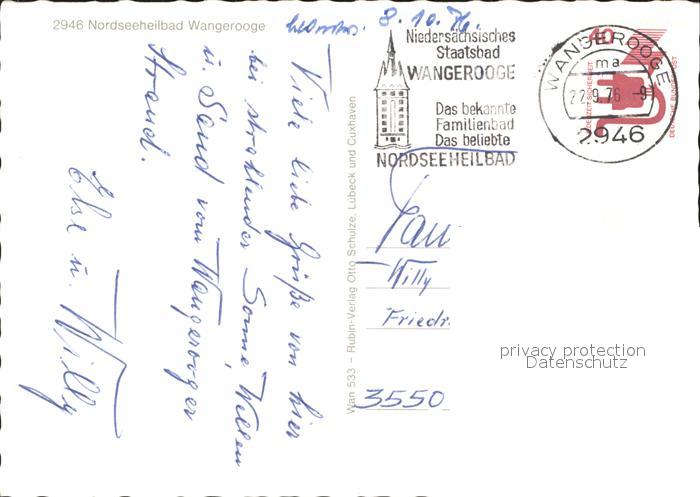 2946 Nordseeheilbad Wangerooge
8. 10. 76.
Viele liebe Grüße von hier
bei strahlender Sonne, Wellen
u. Sand vom Wangerooger
Strand.
Else u. Willy
Wan 533 – Rubin-Verlag Otto Schulze, Lübeck und Cuxhaven
Niedersächsisches
Staatsbad
WANGEROOGE
Das bekannte
Familienbad
Das beliebte
NORDSEEHEILBAD
WANGEROOGE
ma
22.9.76-9
2946
40
DEUTSCHE BUNDESPOST
Willy
Friedr.
3550
privacy protection
Datenschutz